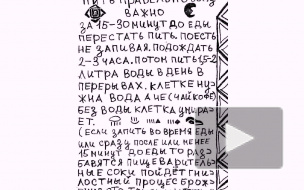 ПИТЬ ПРАВИЛЬНО ВОДУ
ВАЖНО
ЗА 15-30 МИНУТ ДО ЕДЫ
ПЕРЕСТАТЬ ПИТЬ. ПОЕСТЬ
НЕ ЗАПИВАЯ. ПОДОЖДАТЬ
2-3 ЧАСА. ПОТОМ ПИТЬ 1,5-2
ЛИТРА ВОДЫ В ДЕНЬ В
ПЕРЕРЫВАХ. КЛЕТКЕ НУ
ЖНА ВОДА А НЕ (ЧАЙ КОФЕ)
БЕЗ ВОДЫ КЛЕТКА УМИРА
ЕТ.
(ЕСЛИ ЗАПИТЬ ВО ВРЕМЯ ЕДЫ
ИЛИ СРАЗУ ПОСЛЕ ИЛИ МЕНЕЕ
15 МИНУТ ДО ЕДЫ ТО РАЗ
БАВЯТСЯ ПИЩЕВАРИТЕЛЬ
НЫЕ СОКИ ПОЙДЁТ ГНИ
ЛОСТНЫЙ ПРОЦЕС БРОЖ